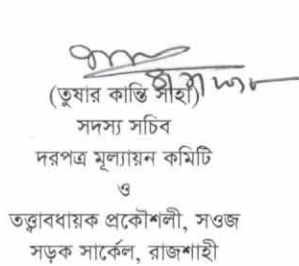 (তুষার কান্তি সাহা)
সদস্য সচিব
দরপত্র মূল্যায়ন কমিটি
ও
তত্ত্বাবধায়ক প্রকৌশলী, সওজ
সড়ক সার্কেল, রাজশাহী